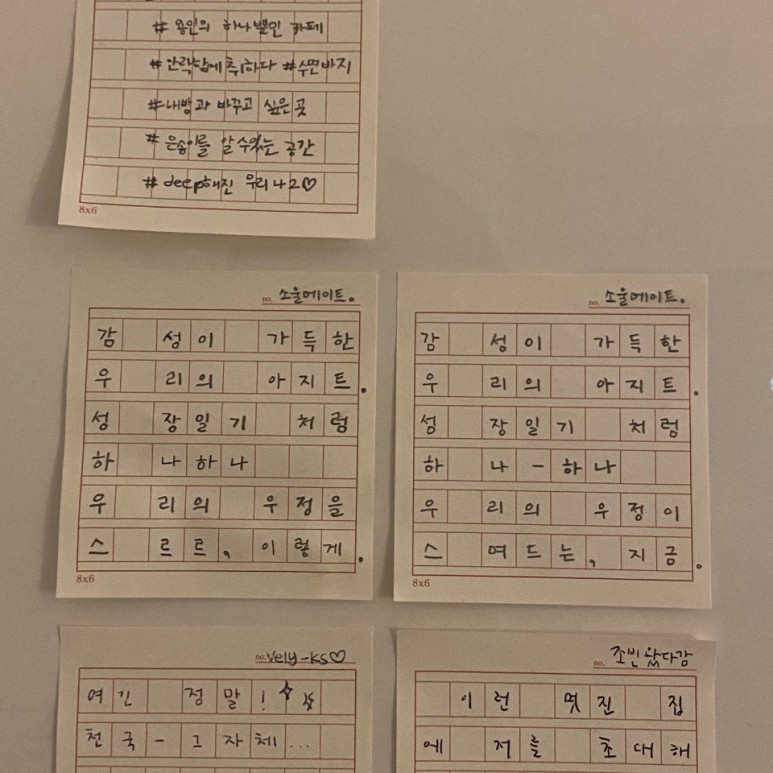 # 용인의 하나뿐인 카페
# 안락함에 취하다 # 수면바지
# 내방과 바꾸고 싶은 곳
# 은송이를 알 수 있는 공간
# deep해진 우리 42♡
8x6
no. 소울메이트.
감 성이 가득한
우 리의 아지트.
성 장일기 처럼
하 나하나
우 리의 우정을
스 르르, 이렇게.
8x6
no. 소울메이트.
감 성이 가득한
우 리의 아지트.
성 장일기 처럼
하 나-하나
우 리의 우정이
스 며드는, 지금.
8x6
no. vely-ks♡
여긴 정말!
천국-그자체...
no. 조빈왔다감
이런 멋진 집
에 저를 초대해